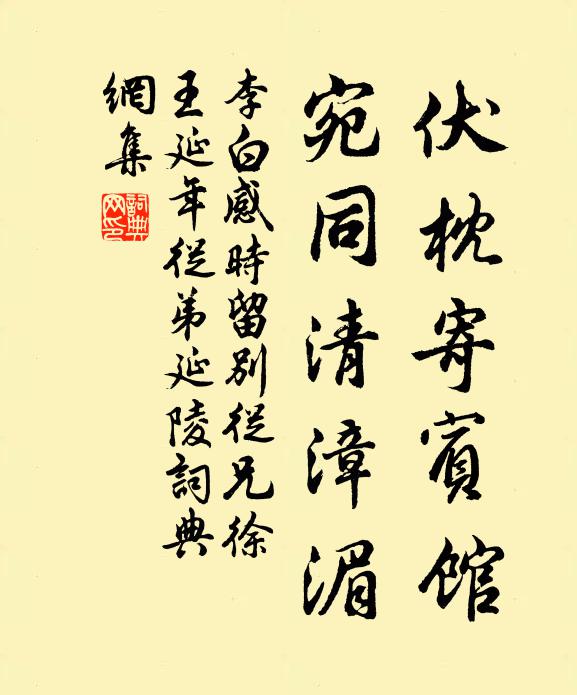 伏枕寄賓館
宛同清漳湄
李白感時留別從兄徐
王延年從弟延陵詞典
網集
詞典
网印